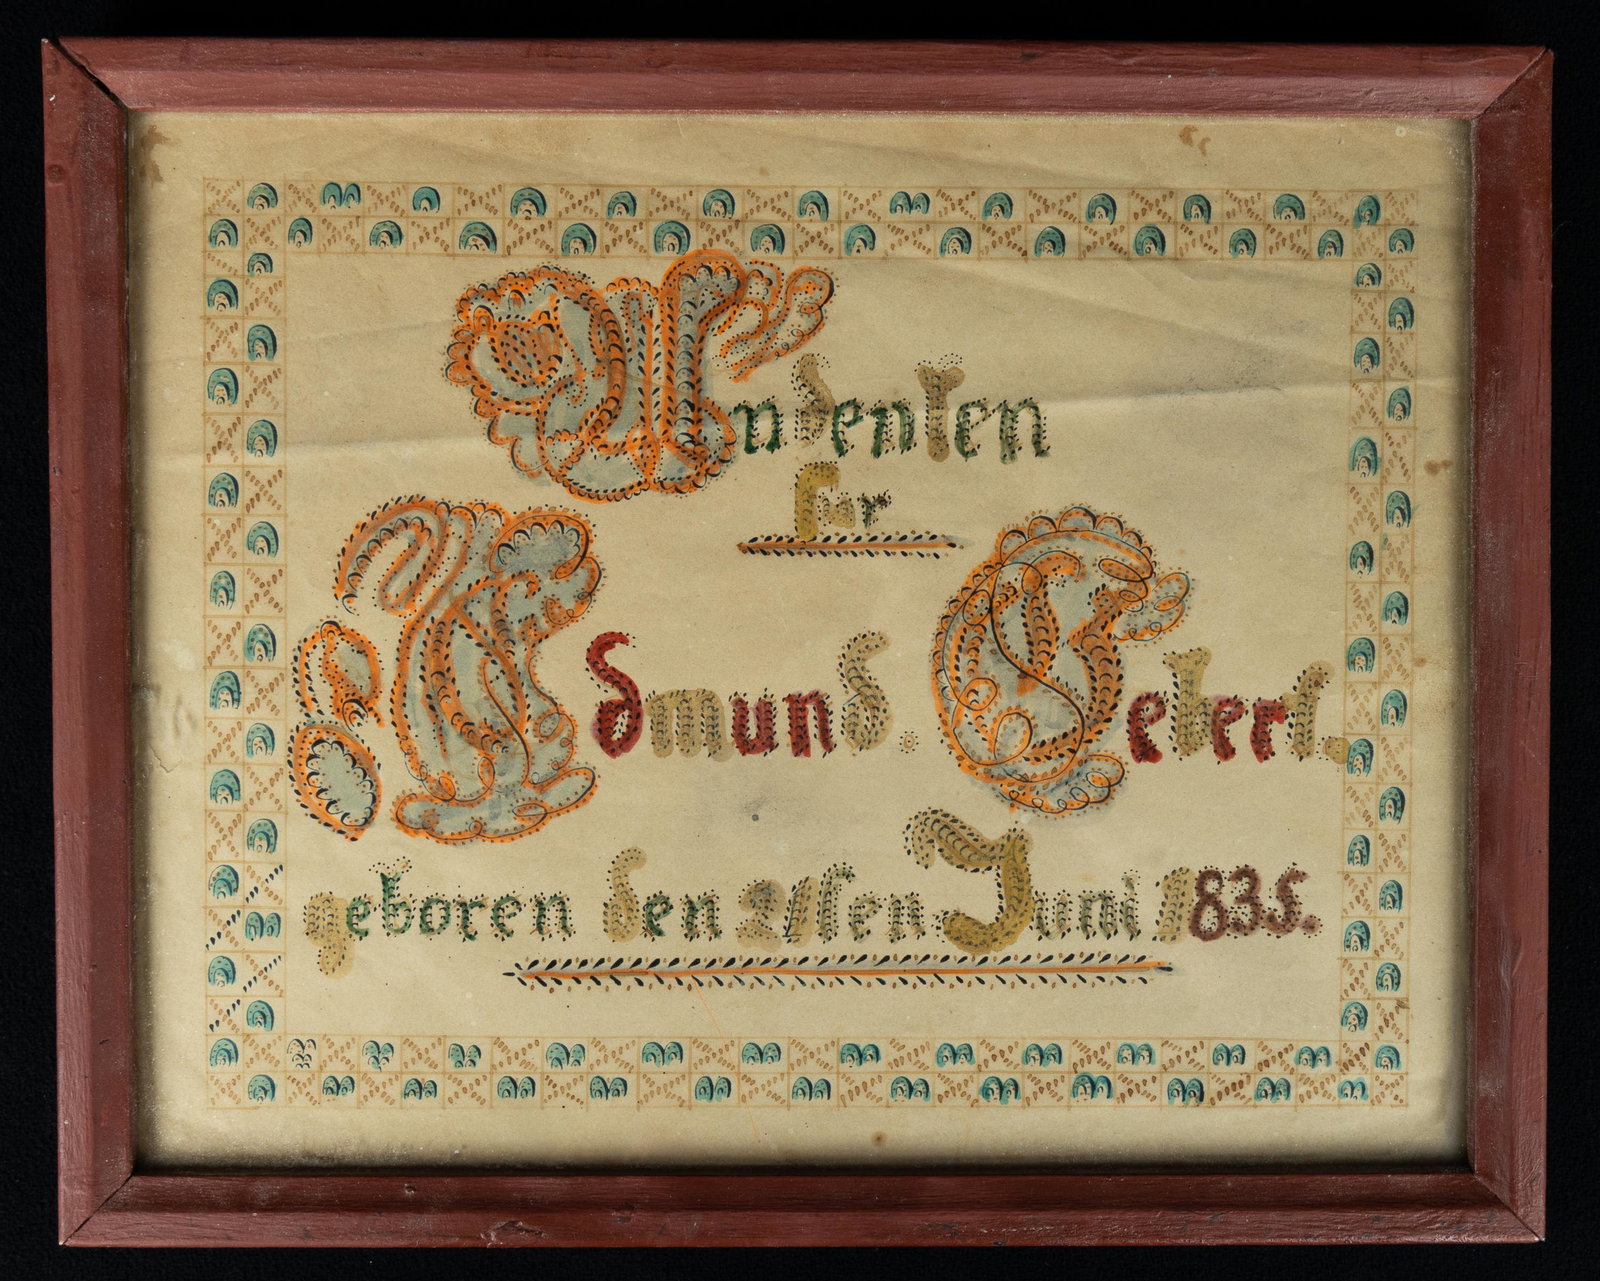 Andenken
für
Edmund. Gebert.
geboren den 21sten Juni 1835.